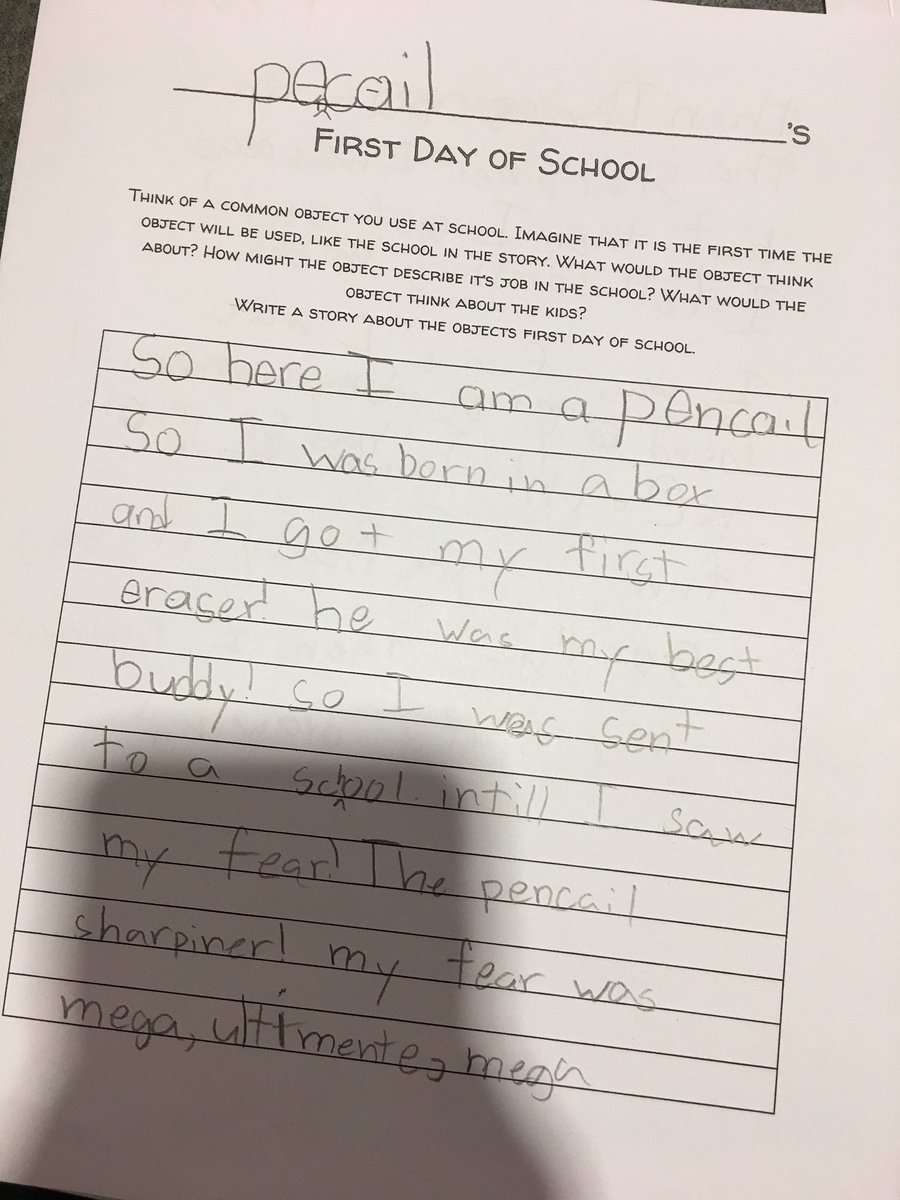 pencail 's
First Day of School
Think of a common object you use at school. Imagine that it is the first time the
object will be used, like the school in the story. What would the object think
about? How might the object describe it's job in the school? What would the
object think about the kids?
Write a story about the objects first day of school.
So here I am a pencail
So I was born in a box
and I got my first
eraser! he was my best
buddy! so I was sent
to a school. intill I saw
my fear! The pencail
sharpiner! my fear was
mega, ultimente, mega